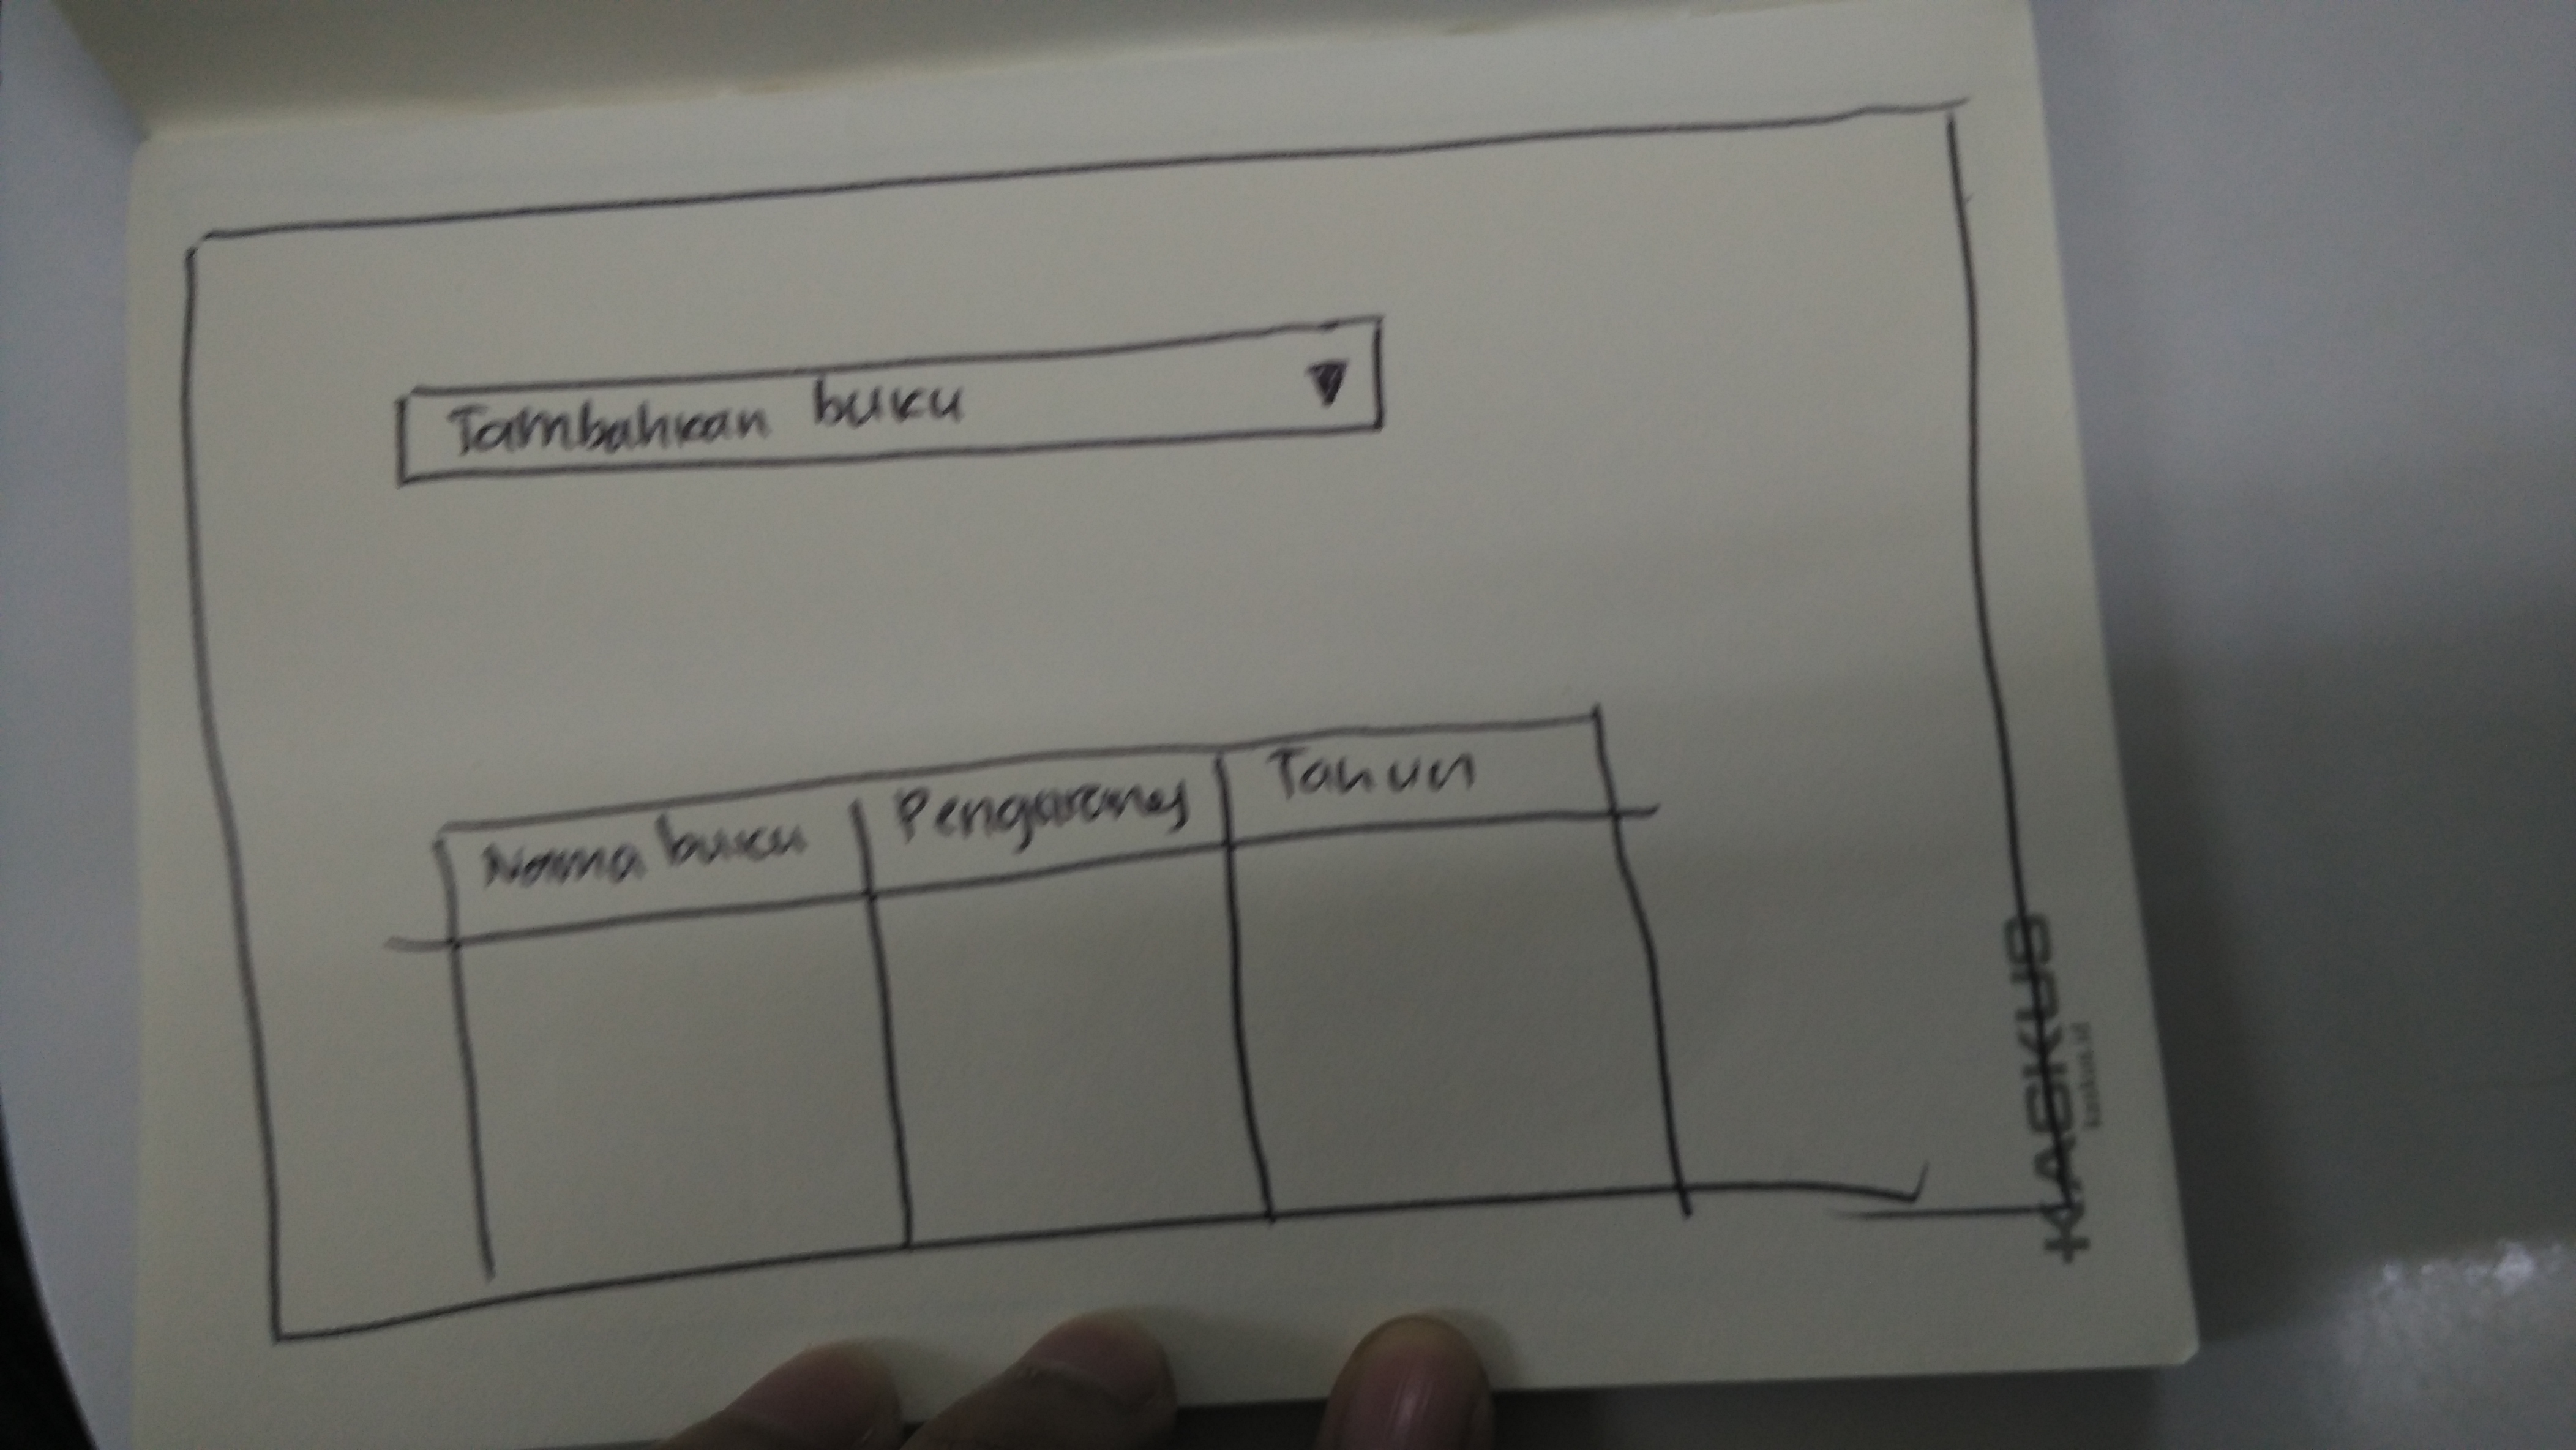 Tambahkan buku ▼
Nama buku Pengarang Tahun
KASKUS
kaskus.id